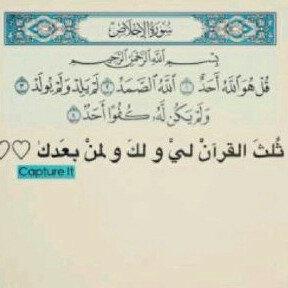 سُورَةُ الإِخْلَاصِ
بِسْمِ اللَّهِ الرَّحْمَٰنِ الرَّحِيمِ
قُلْ هُوَ اللَّهُ أَحَدٌ ١ اللَّهُ الصَّمَدُ ٢ لَمْ يَلِدْ وَلَمْ يُولَدْ ٣
وَلَمْ يَكُن لَّهُ كُفُوًا أَحَدٌ ٤
ثُلثَ القرآنْ ليْ و لكَ و لمنْ بعدكَ ♡♡
Capture It